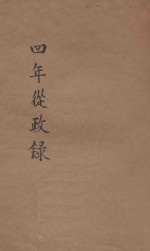 四年從政録